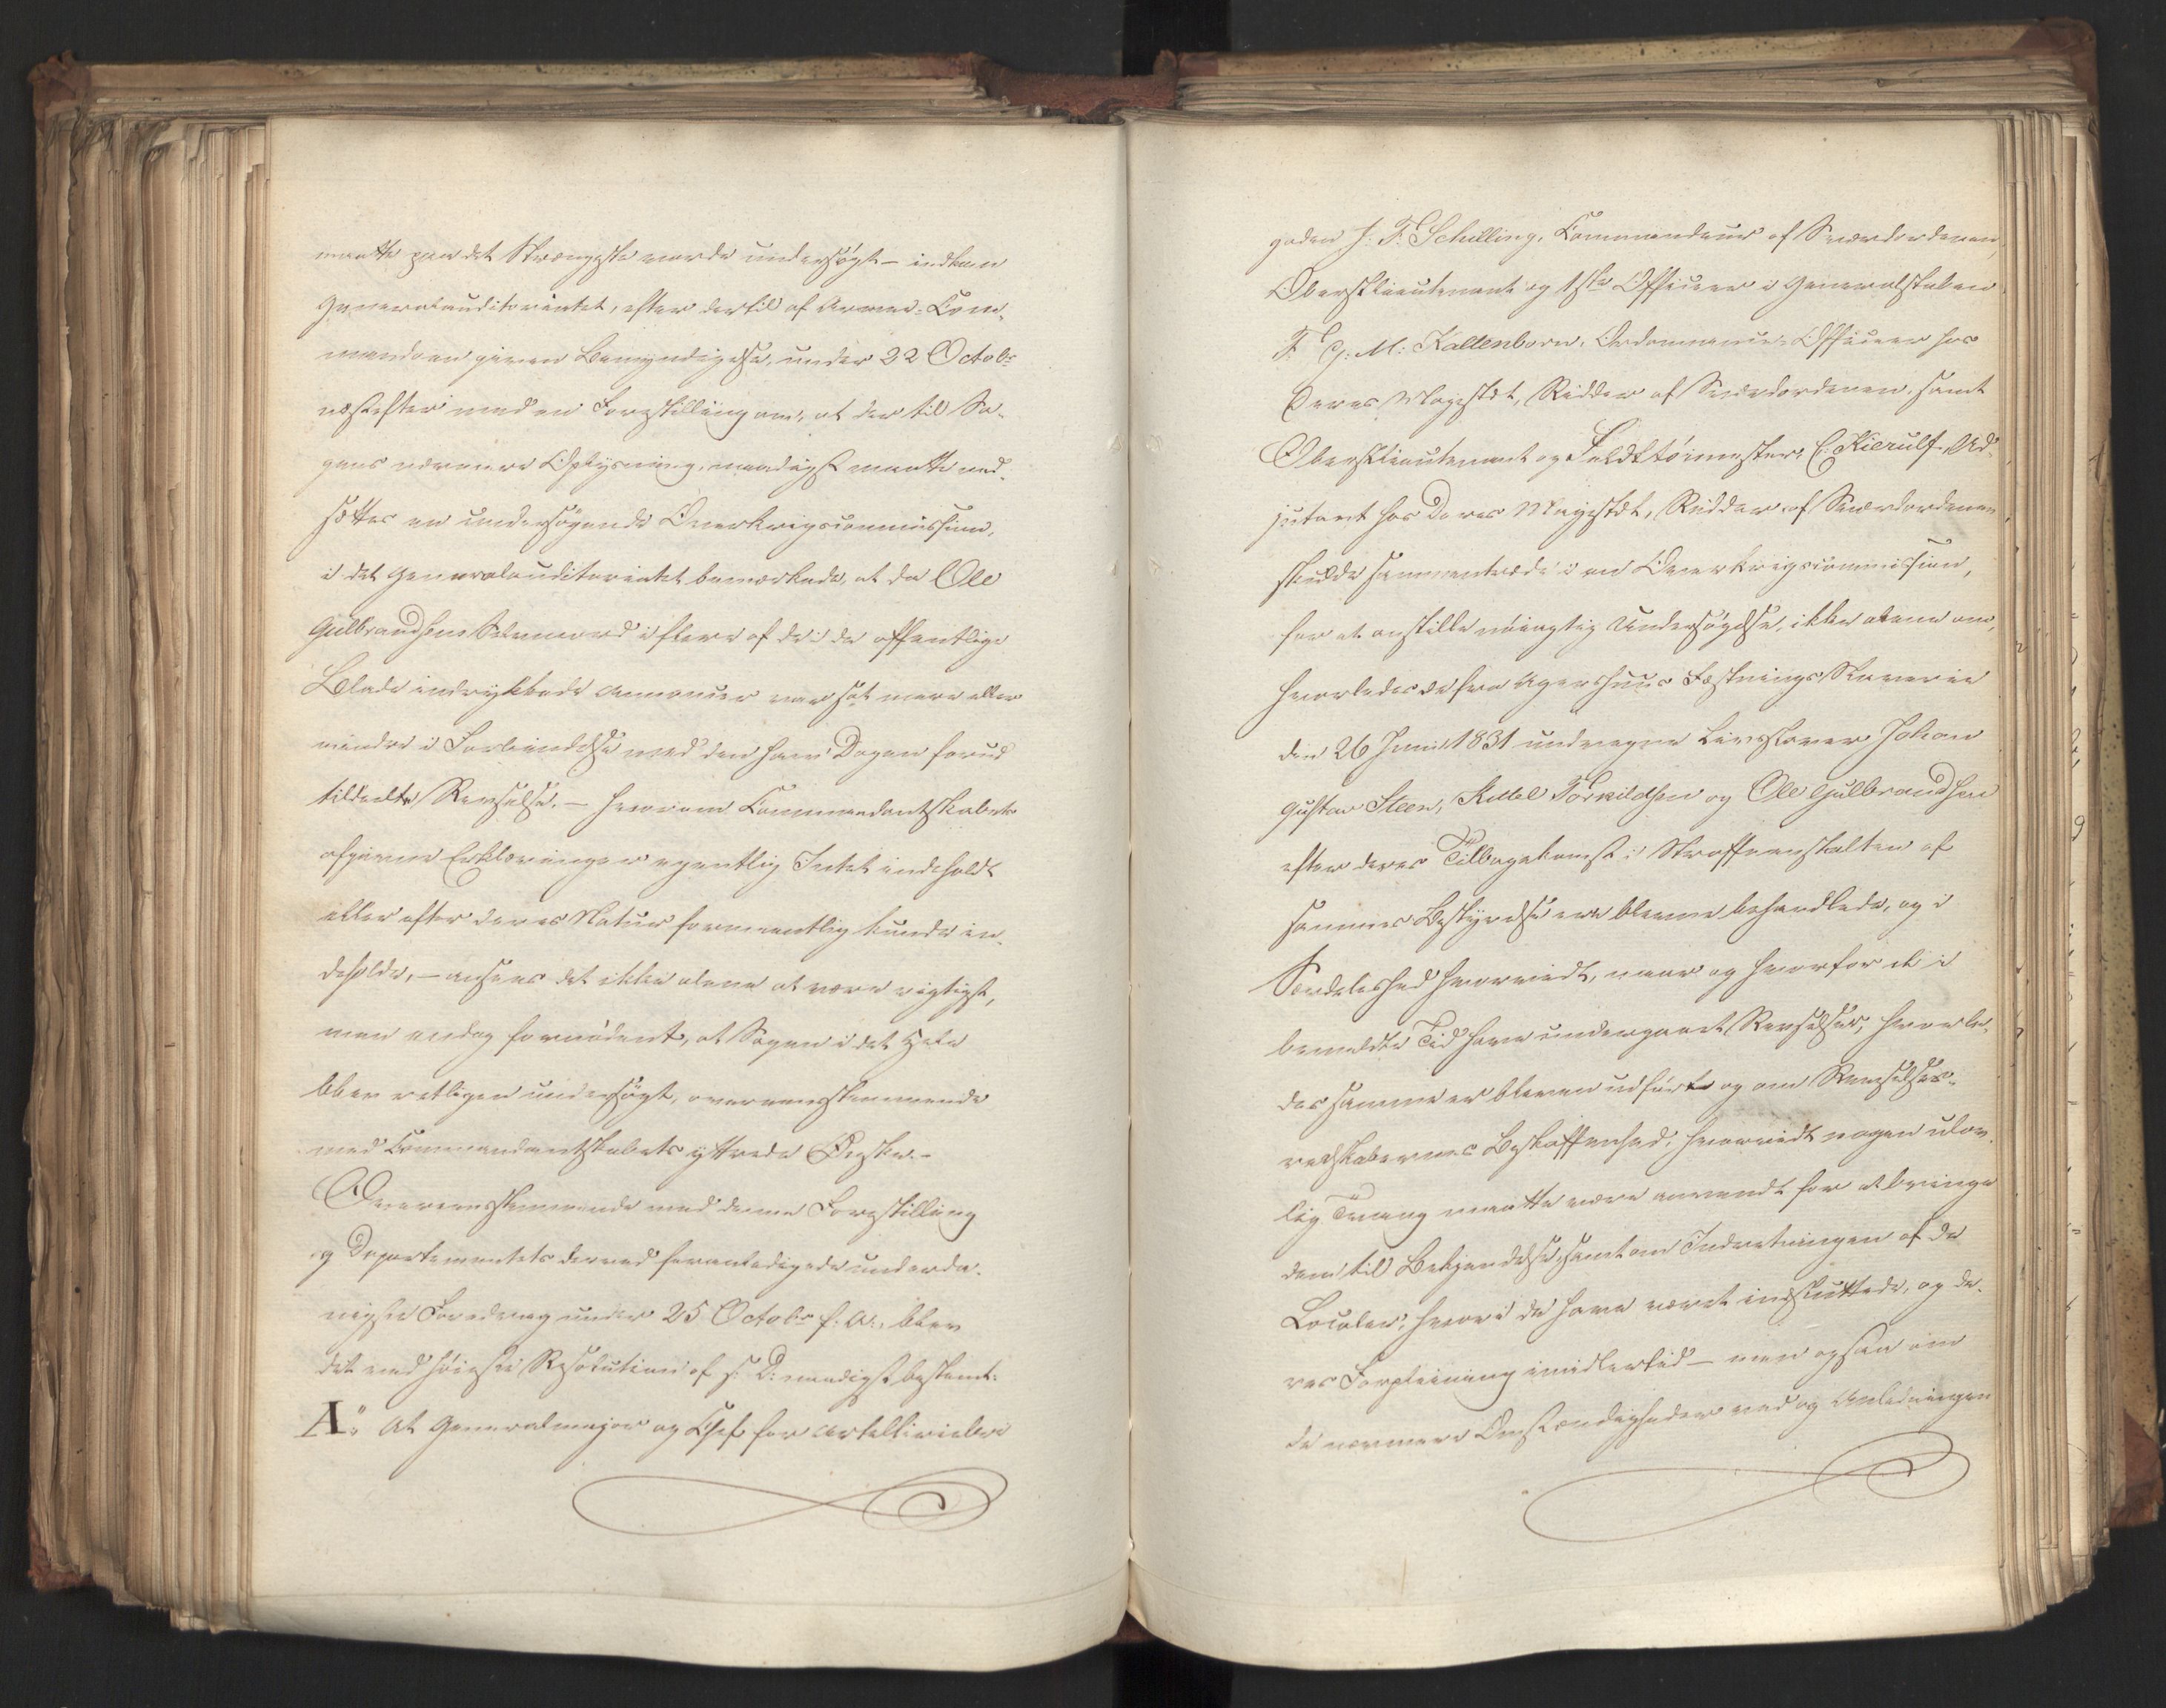 maatte paa det Strængeste vorde undersøgt – indkom
Generalauditoriatet, efter dertil af Armee-Com-
mandoen given Bemyndigelse, under 22 Octobr
næstefter med en Forestilling om, at der til Sa-
gens nærmere Oplysning, naadigst maatte ned-
sættes en undersøgende Overkrigscommission,
i det Generalauditoriatet bemærkede, at da Ole
Gulbrandsens Selvmord i flere af de i de offentlige
Blade indrykkede Annoncer var sat mere eller
mindre i Forbindelse med den ham Dagen forud
tildeelte Revselse, – hvorom Commandantskabets
afgivne Erklæringer egentlig Intet indeholdt
eller efter deres Natur formeentlig kunde in-
deholde, – ansees det ikke alene at være rigtigst,
men endog fornødent, at Sagen i det Hele
blev retligen undersøgt, overeensstemmende
med Commandantskabets yttrede Ønske. –
Overeensstemmende med denne Forestilling
og Departementets derved foranledigede underda-
nigste Foredrag under 25 Octobr f: A:, blev
det ved høieste Resolution af s: D: naadigst bestemt:
A" At Generalmajor og Chef for Artilleriebri
gaden J: F: Schilling, Commandeur af Sværdordenen,
Oberstlieutenant og 1ste Officeer i Generalstaben
F. G: M: Kaltenborn, Ordonnance-Officeer hos
Deres Majestæt, Ridder af Sværdordenen, samt
Oberstlieutenant og Feldttøimester C: Kierulf, Ad-
jutant hos Deres Majestæt, Ridder af Sværdordenen,
skulde sammentræde i en Overkrigscommission,
for at anstille nøiagtig Undersøgelse, ikke alene om,
hvorledes de fra Agershuus Fæstnings Slaverie
den 26 Juni 1831 undvegne Livsslaver Johan
Gustav Steen, Kittel Torkildsen og Ole Gulbrandsen
efter deres Tilbagekomst i Straffeanstalten af
sammes Bestyrelse ere blevne behandlede, og i
Særdeleshed hvorvidt, naar og hvorfor de i
bemeldte Tid have undergaaet Revselser, hvorle-
des samme er bleven udført og om Revselses-
redskabernes Beskaffenhed; hvorvidt nogen ulov-
lig Tvang maatte være anvendt for at bringe
dem til Bekjendelse, samt om Indretningen af de
Localer, hvori de have været indsluttede, og de-
res Forpleining imidlertid – men ogsaa om
de nærmere Omstændigheder ved og Anledningen